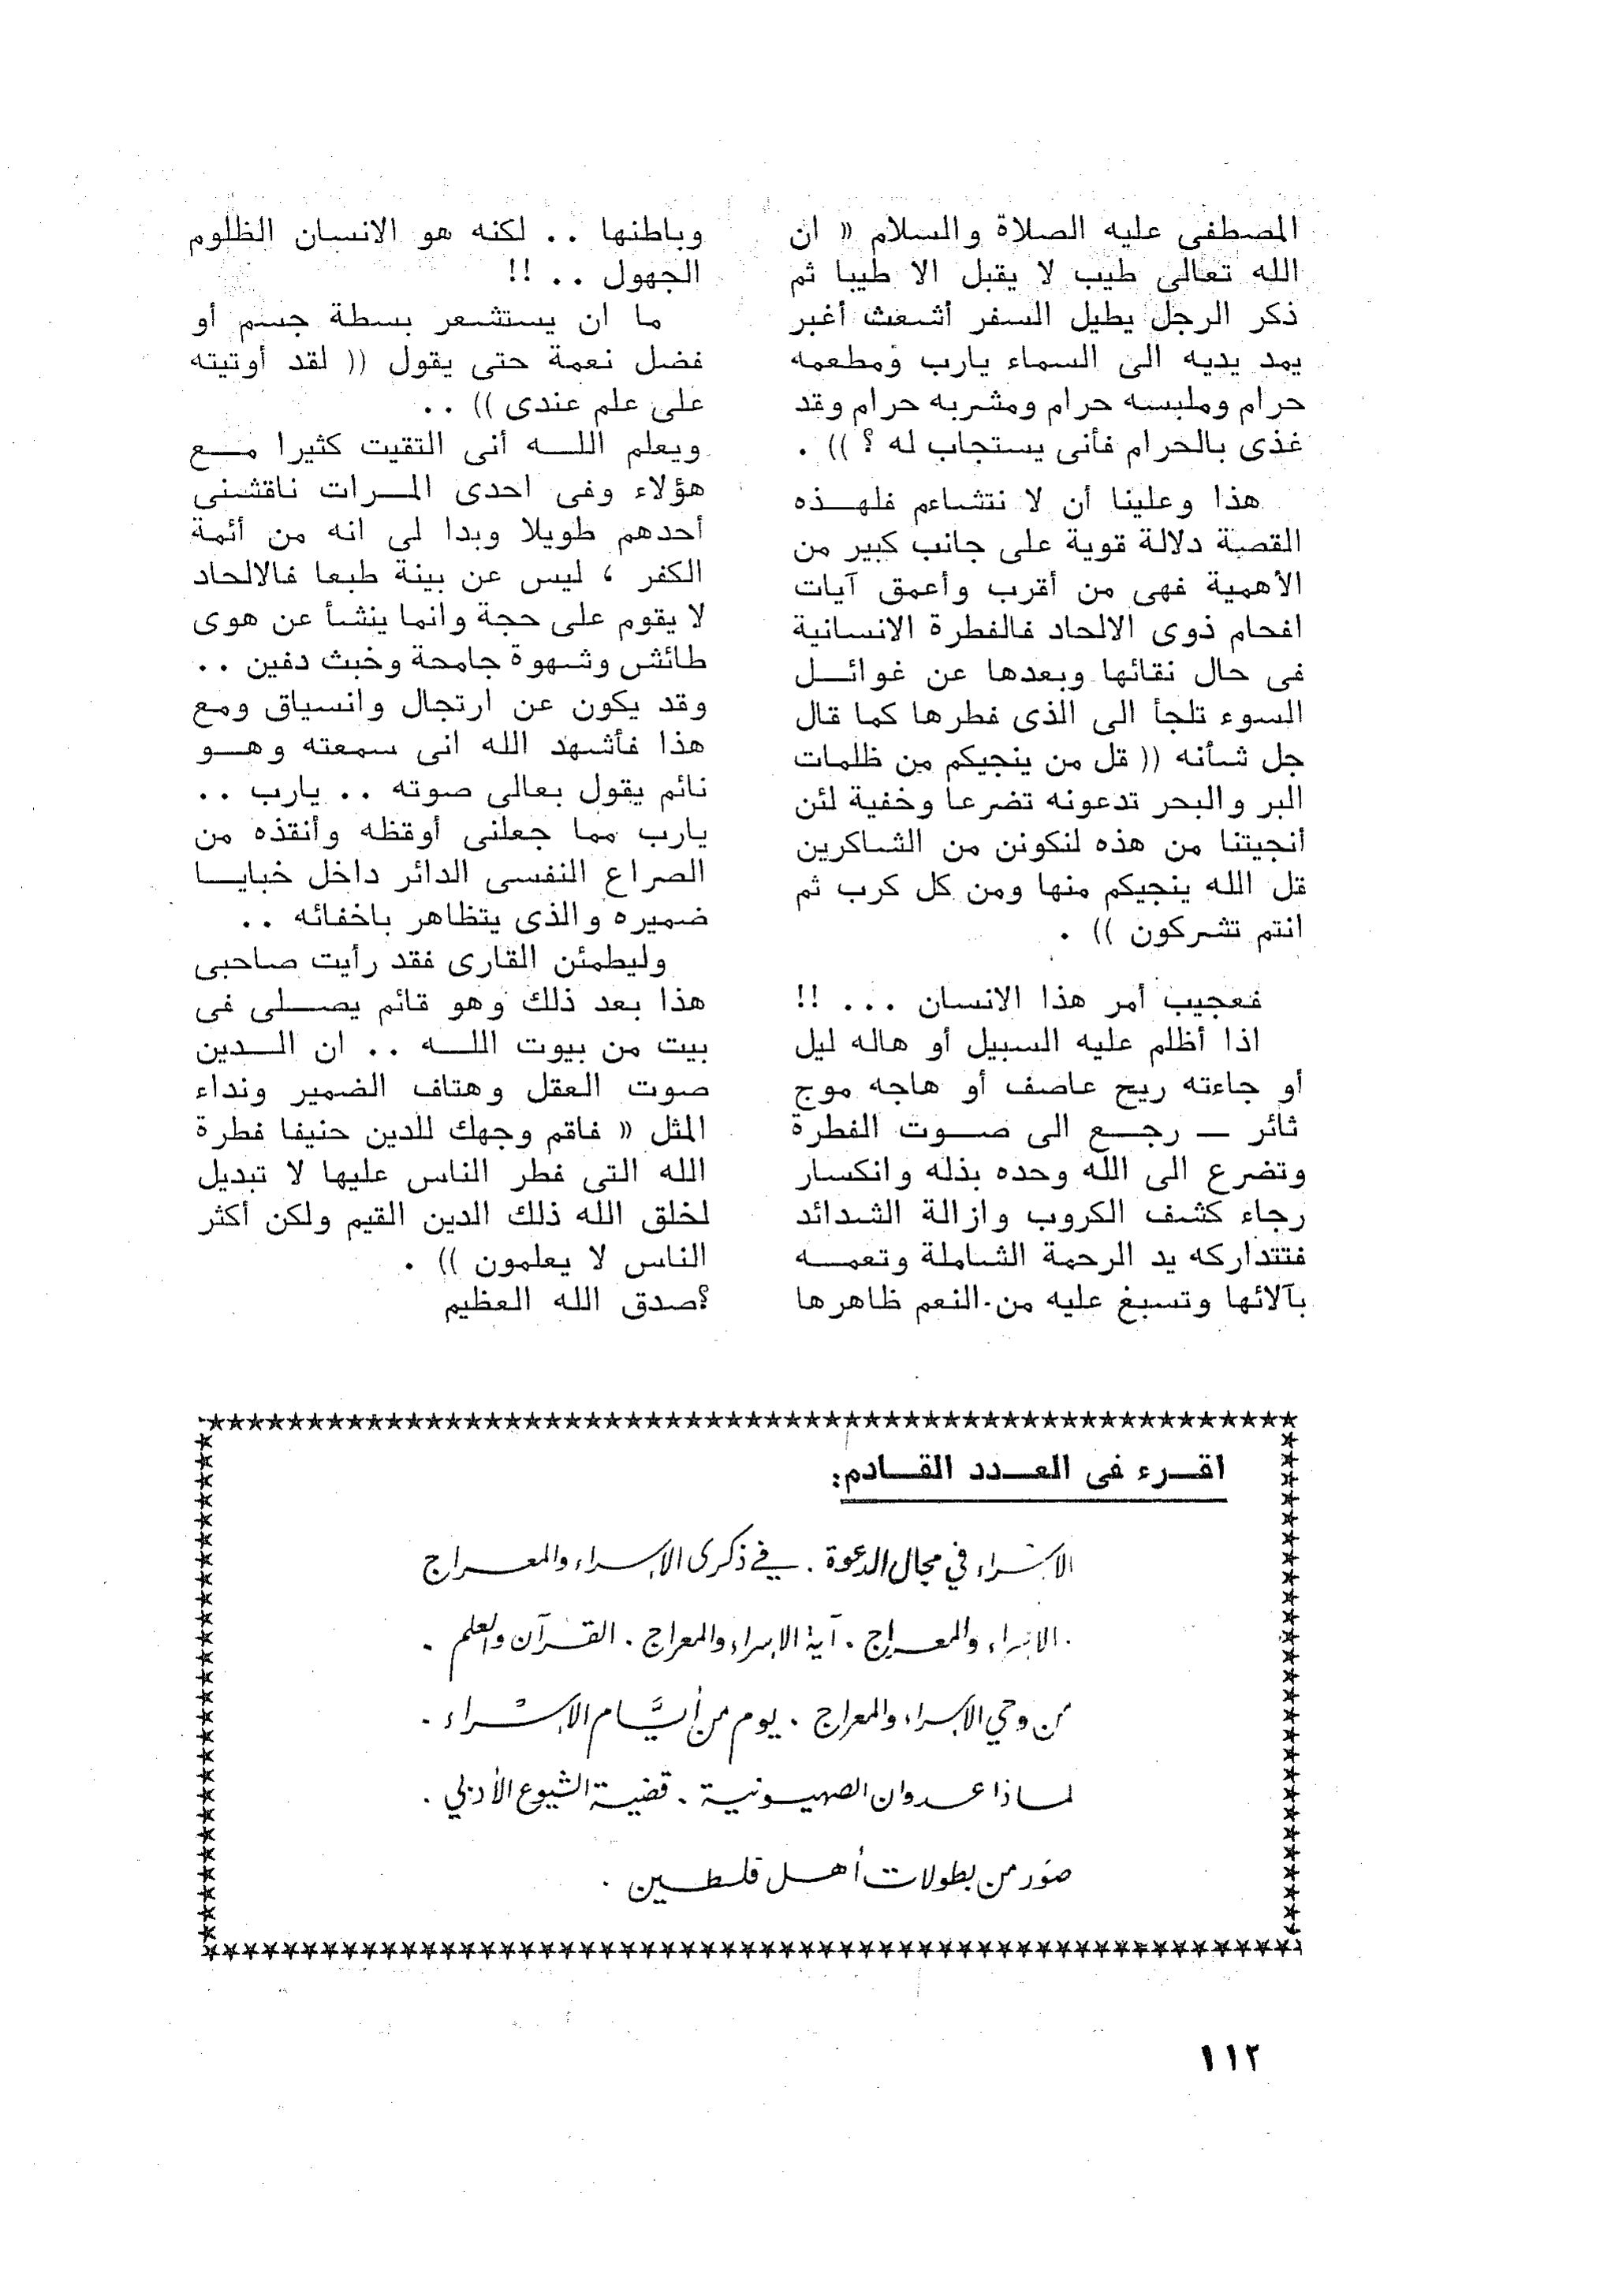 المصطفى عليه الصلاة والسلام « ان
الله تعالى طيب لا يقبل الا طيبا ثم
ذكر الرجل يطيل السفر أشعث أغبر
يمد يديه الى السماء يارب ومطعمه
حرام وملبسه حرام ومشربه حرام وقد
غذى بالحرام فأنى يستجاب له ؟ )) .
هذا وعلينا أن لا نتشاءم فلهـــذه
القصة دلالة قوية على جانب كبير من
الأهمية فهى من أقرب وأعمق آيات
افحام ذوى الالحاد فالفطرة الانسانية
فى حال نقائها وبعدها عن غوائـــل
السوء تلجأ الى الذى فطرها كما قال
جل شأنه (( قل من ينجيكم من ظلمات
البر والبحر تدعونه تضرعا وخفية لئن
أنجيتنا من هذه لنكونن من الشاكرين
قل الله ينجيكم منها ومن كل كرب ثم
انتم تشركون )) .
فعجيب أمر هذا الانسان ... !!
اذا أظلم عليه السبيل أو هاله ليل
أو جاءته ريح عاصف أو هاجه موج
ثائر — رجـــع الى صـــوت الفطرة
وتضرع الى الله وحده بذله وانكسار
رجاء كشف الكروب وازالة الشدائد
فتتداركه يد الرحمة الشاملة وتعمـــه
بآلائها وتسبغ عليه من النعم ظاهرها
وباطنها .. لكنه هو الانسان الظلوم
الجهول .. !!
ما ان يستشعر بسطة جسم أو
فضل نعمة حتى يقول (( لقد أوتيته
على علم عندى )) ..
ويعلم اللـــه أنى التقيت كثيرا مـــع
هؤلاء وفى احدى المـــرات ناقشنى
أحدهم طويلا وبدا لى انه من أئمة
الكفر ، ليس عن بينة طبعا فالالحاد
لا يقوم على حجة وانما ينشأ عن هوى
طائش وشهوة جامحة وخبث دفين ..
وقد يكون عن ارتجال وانسياق ومع
هذا فأشهد الله انى سمعته وهـــو
نائم يقول بعالى صوته .. يارب ..
يارب مما جعلنى أوقظه وأنقذه من
الصراع النفسى الدائر داخل خبايـــا
ضميره والذى يتظاهر باخفائه ..
وليطمئن القارى فقد رأيت صاحبى
هذا بعد ذلك وهو قائم يصـــلى فى
بيت من بيوت اللـــه .. ان الـــدين
صوت العقل وهتاف الضمير ونداء
المثل « فاقم وجهك للدين حنيفا فطرة
الله التى فطر الناس عليها لا تبديل
لخلق الله ذلك الدين القيم ولكن أكثر
الناس لا يعلمون )) .
؟صدق الله العظيم
اقـــرء فى العـــدد القـــادم:
الإسراء في مجال الدعوة . في ذكرى الإسراء والمعراج
. الإسراء والمعراج . آية الإسراء والمعراج . القرآن والعلم .
من وحي الإسراء والمعراج . يوم من أيَّام الإسراء .
لماذا عدوان الصهيونية . قضية الشيوع الأدبي .
صور من بطولات أهل فلسطين .
١١٢